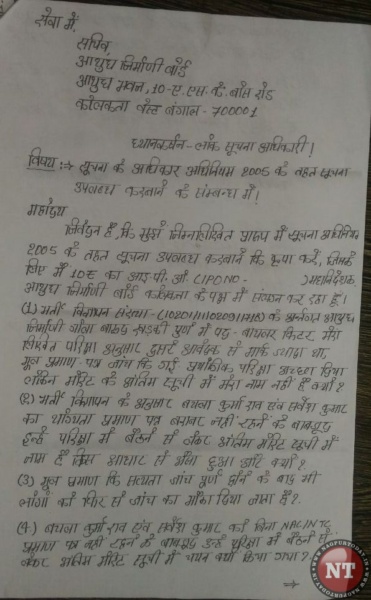 सेवा में,
सचिव,
आयुध निर्माणी बोर्ड
आयुध भवन, 10-ए. एस. के. बोस रोड
कोलकता वेस्ट बंगाल - 700001
ध्यानाकर्षन - लोक सूचना अधिकारी!
विषय :→ सूचना के अधिकार अधिनियम 2005 के तहत सूचना
उपलब्ध करवाने के सम्बन्ध में!
महोदय
निवेदन है, कि मुझे निम्नलिखित प्रारूप में सूचना अधिनियम
2005 के तहत सूचना उपलब्ध करवाने कि कृपा करें, जिसके
लिए मैं 10रु का आई.पी.ओ (IPONO- ) महानिदेशक
आयुध निर्माणी बोर्ड कोलकता के पक्ष में संलग्न कर रहा हूँ।
(1) भर्ती विज्ञापन संख्या - के अन्तर्गत आयुध
निर्माणी खड़की पुणे में पद - बायलर फिटर मेरा
लिखित परिक्षा अनुसार दुसरे आवेदक से मार्क ज्यादा था,
मूल प्रमाण-पत्र जांच कि गई परिक्षा अच्छा दिया
लेकिन मेरिट के अंतिम सूची में मेरा नाम नहीं है क्यों?
(2) भर्ती विज्ञापन के अनुसार कुर्मा राव एवं सर्वेश कुमार
का योग्यता प्रमाण पत्र बराबर नहीं रहने के बावजूद
इन्हें परिक्षा में बैठने से लेकर अंतिम मेरिट सूची में
नाम है किस आधार से ऐसा हुआ और क्यों?
(3) मूल प्रमाण कि सत्यता जांच पूर्ण होने के बाद भी
लोगों को फिर से जांच का मौका दिया जाता है?
(4) कुर्मा राव एवं सर्वेश कुमार को बिना NAC/NTC
प्रमाण पत्र नहीं रहने के बावजूद इन्हें परिक्षा में बैठने से
लेकर अंतिम मेरिट सूची में चयन क्यों किया गया?
NT
WWW.NAGPURTODAY.IN